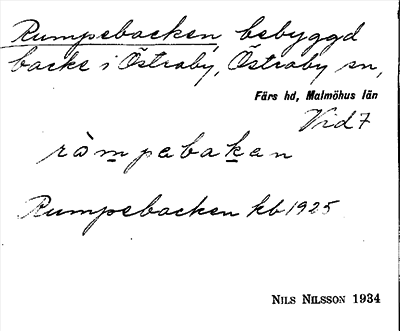 Rumpebacken, bebyggd
backe i Östraby, Östraby sn,
Färs hd, Malmöhus län
Vid 7
ràmpebakan
Rumpebacken kb 1925
NILS NILSSON 1934